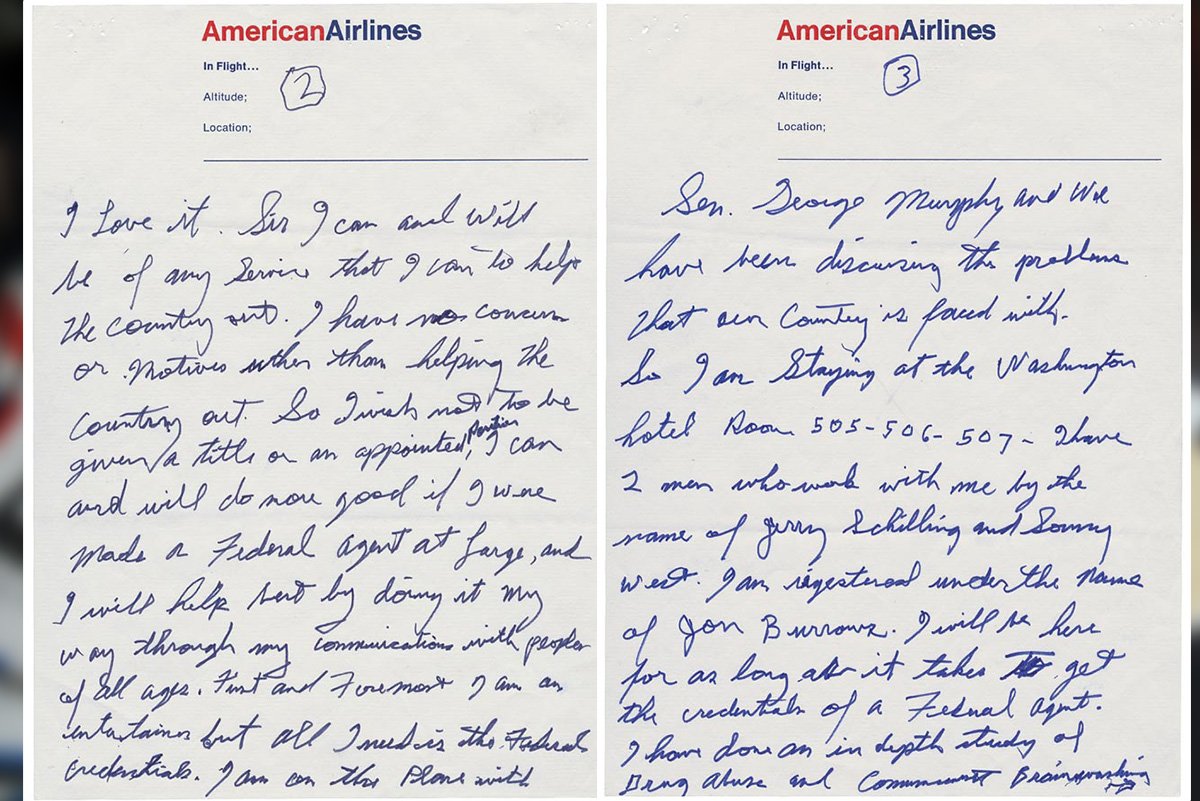 AmericanAirlines
In Flight...
2
Altitude;
Location;
I Love it. Sir I can and will
be of any Service that I can to help
the country out. I have no concerns
or Motives other than helping the
Country out. So I wish not to be
given a title or an appointed, Position I can
and will do more good if I were
made a Federal Agent at Large, and
I will help best by doing it my
way through my communications with people
of all ages. First and Foremost I am an
entertainer but all I need is the Federal
credentials. I am on the Plane with
AmericanAirlines
In Flight...
3
Altitude;
Location;
Sen. George Murphy and We
have been discussing the problems
that our Country is faced with.
So I am Staying at the Washington
hotel Room 505-506-507- I have
2 men who work with me by the
name of Jerry Schilling and Sonny
West. I am registered under the name
of Jon Burrows. I will be here
for as long as it takes to get
the credentials of a Federal Agent.
I have done an in depth study of
Drug Abuse and Communist Brainwashing